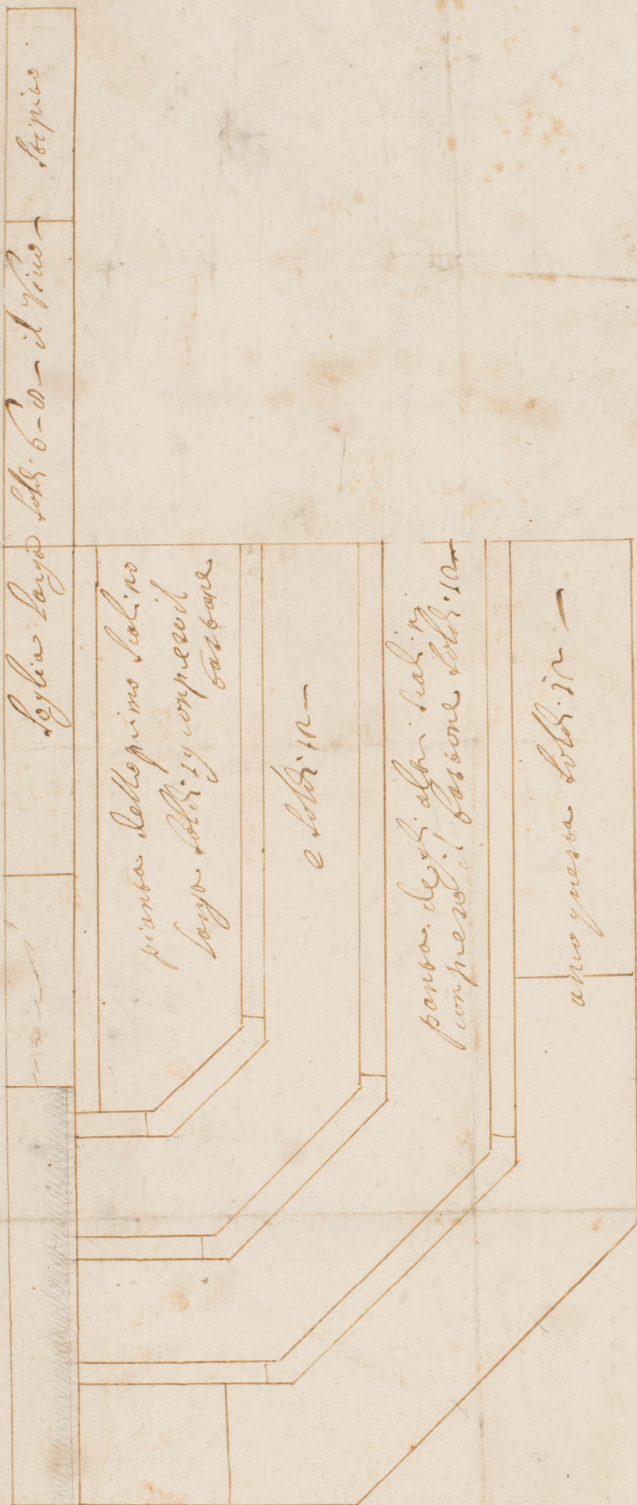 Stipito
Soglia larga soldi 6-0- il Vivo-
pianta dello primo scalino
largo soldi 19 conpreso il
bastone
e soldi 12-
panta de gli altri scalini
conpreso il bastone soldi 12-
anco questa soldi 12-